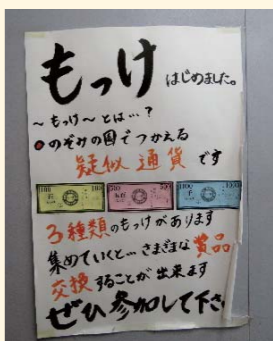 もっけ はじめました。
～もっけ～とは…?
●のぞみの国でつかえる
疑似通貨です
100 100 500 500 1000 1000
3種類のもっけがあります
集めていくと…さまざまな賞品
交換することが出来ます
ぜひ参加して下さ